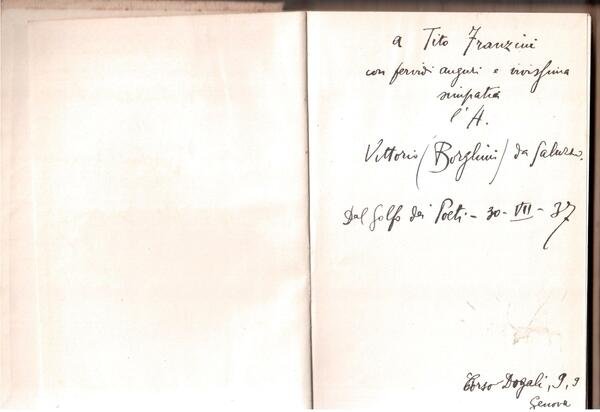 a Tito Franzini
con fervidi auguri e vivissima
simpatia
l'A.
Vittorio (Borghini) da Saluzzo.
Dal Golfo dei Poeti - 30 - VII - 37
Corso Dogali, 9, 9
Genova